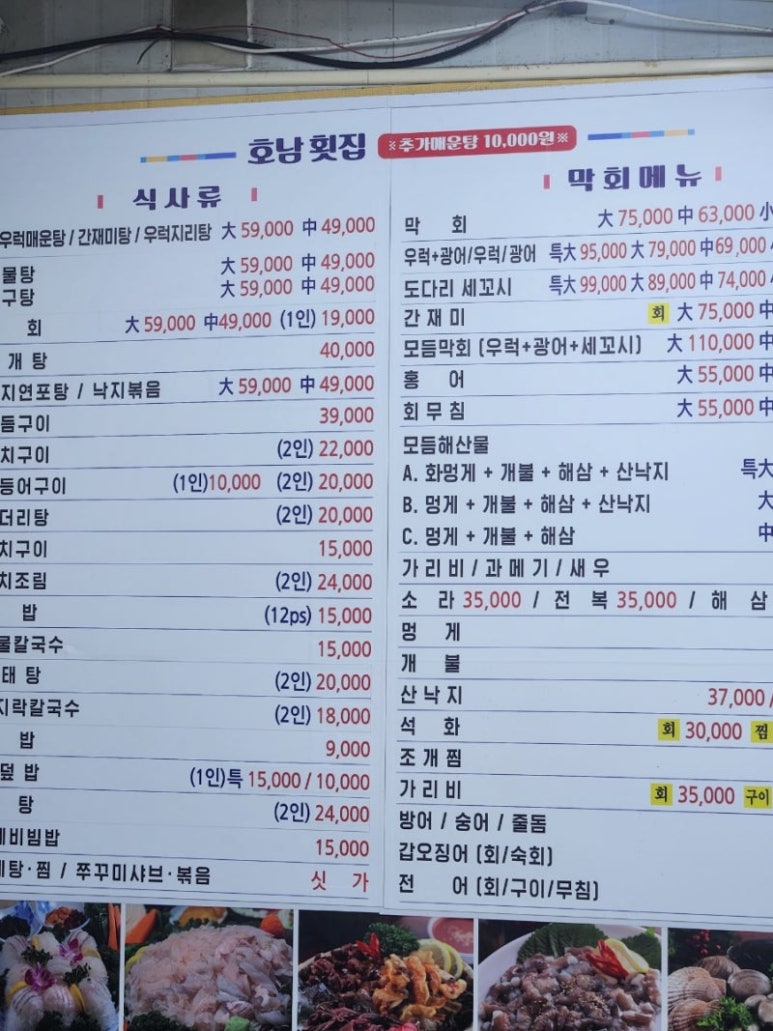 호남횟집 ※추가매운탕 10,000원※
식사류
우럭매운탕 / 간재미탕 / 우럭지리탕 大 59,000 中 49,000
물탕 大 59,000 中 49,000
구탕 大 59,000 中 49,000
회 大 59,000 中49,000 (1인) 19,000
개탕 40,000
지연포탕 / 낙지볶음 大 59,000 中 49,000
듬구이 39,000
치구이 (2인) 22,000
등어구이 (1인)10,000 (2인) 20,000
더리탕 (2인) 20,000
치구이 15,000
치조림 (2인) 24,000
밥 (12ps) 15,000
물칼국수 15,000
태탕 (2인) 20,000
지락칼국수 (2인) 18,000
밥 9,000
덮밥 (1인)특 15,000 / 10,000
탕 (2인) 24,000
비빔밥 15,000
탕·찜 / 쭈꾸미샤브·볶음 싯가
막회메뉴
막회 大 75,000 中 63,000 小
우럭+광어/우럭/광어 특大 95,000 大 79,000 中69,000
도다리 세꼬시 특大 99,000 大 89,000 中 74,000
간재미 회 大 75,000 中
모듬막회 (우럭+광어+세꼬시) 大 110,000 中
홍어 大 55,000 中
회무침 大 55,000 中
모듬해산물
A. 화멍게 + 개불 + 해삼 + 산낙지 특大
B. 멍게 + 개불 + 해삼 + 산낙지 大
C. 멍게 + 개불 + 해삼 中
가리비 / 과메기 / 새우
소라 35,000 / 전복 35,000 / 해삼
멍게
개불
산낙지 37,000 /
석화 회 30,000 찜
조개찜
가리비 회 35,000 구이
방어 / 숭어 / 줄돔
갑오징어 (회/숙회)
전어 (회/구이/무침)